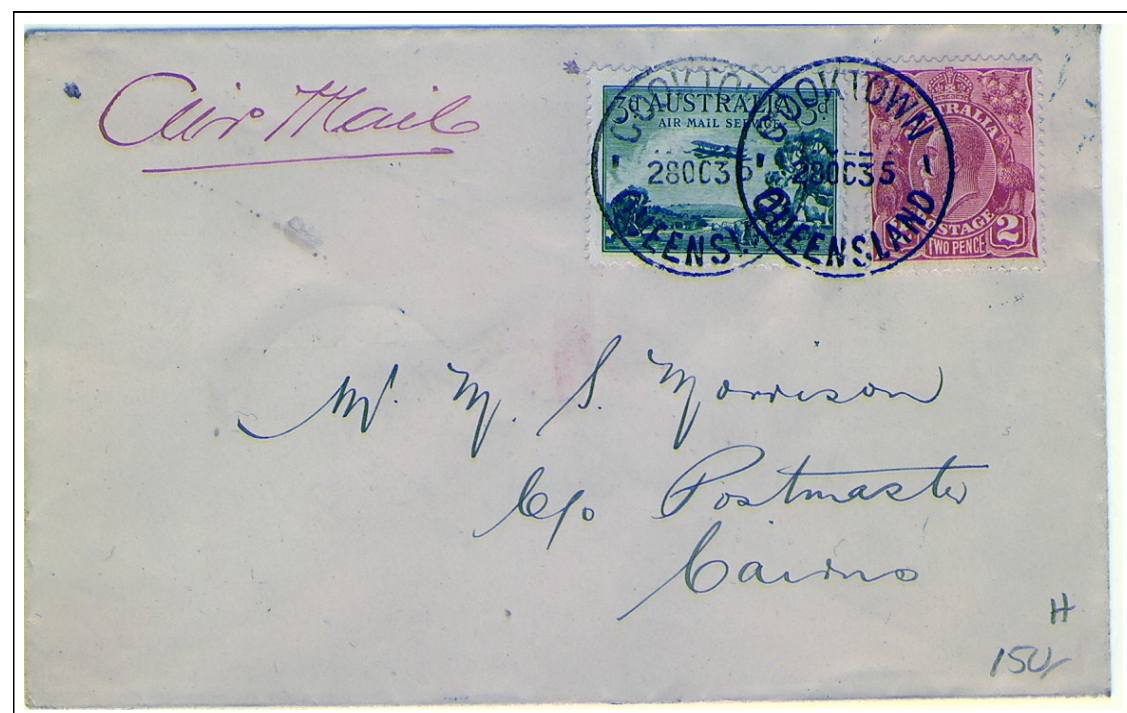 Air Mail
3d AUSTRALIA 3d
AIR MAIL SERVICE
COOKTOWN
28OC35
QUEENSLAND
COOKTOWN
28OC35
QUEENSLAND
AUSTRALIA
POSTAGE
TWO PENCE 2
Mr. M. S. Morrison
C/o Postmaster
Cairns
H
150/-